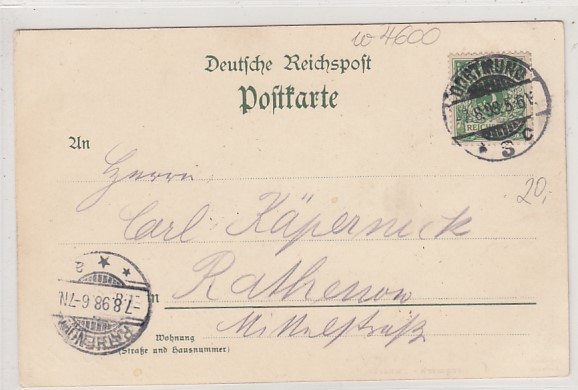 w 4600
Deutsche Reichspost
Postkarte
DORTMUND
8.98.5-6N.
* 3 c
REICHS
An
Herrn
Carl Käperneck
20,-
in Rathenow
Mittelstraße
Wohnung
(Straße und Hausnummer)
RATHENOW
7.8.98.6-7N.
* * a